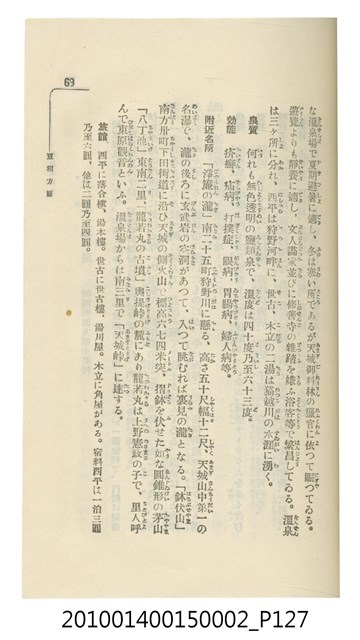 な温泉場で夏期避暑に適し、冬は寒い所であるが天城御料林の獵官に依つて賑つてゐる。
遊覽よりも靜養に適し、文人高士並びに修善寺の雜踏を嫌ふ浴客等で繁昌してゐる。溫泉
は三ヶ所に分れ、西平は狩野河畔に、世古、木立の二湯は猫越川の水涯に湧く。
泉質 何れも無色透明の鹽類泉で、溫度は四十度乃至六十三度。
効能 疥癬、疝病、打撲症、眼病、胃腸病、婦人病等。
附近名所 「淨簾の瀧」南二十五町狩野川に懸る、高さ五十尺幅十二尺、天城山中第一の
名瀑で、瀧の後ろに玄武岩の空洞があつて、入つて眺むれば裏見の瀧となる。「鉢伏山」
南方卅町下田街道に沿ひ天城の側火山で標高六七四米突、摺鉢を伏せた如な圓錐形の茅山
「八丁池」東南二里。龍若丸の古墳、奧揚峠の麓にあり龍若丸は上野憲政の子で、里人呼
んで東原觀音といふ。溫泉場からは南三里で「天城峠」に達する。
旅館 西平に落合樓、湯本樓。世古に世古樓、湯川屋。木立に角屋がある。宿料西平は一泊三圓
乃至六圓、他は二圓乃至四圓。
豆相方面
69
201001400150002_P127